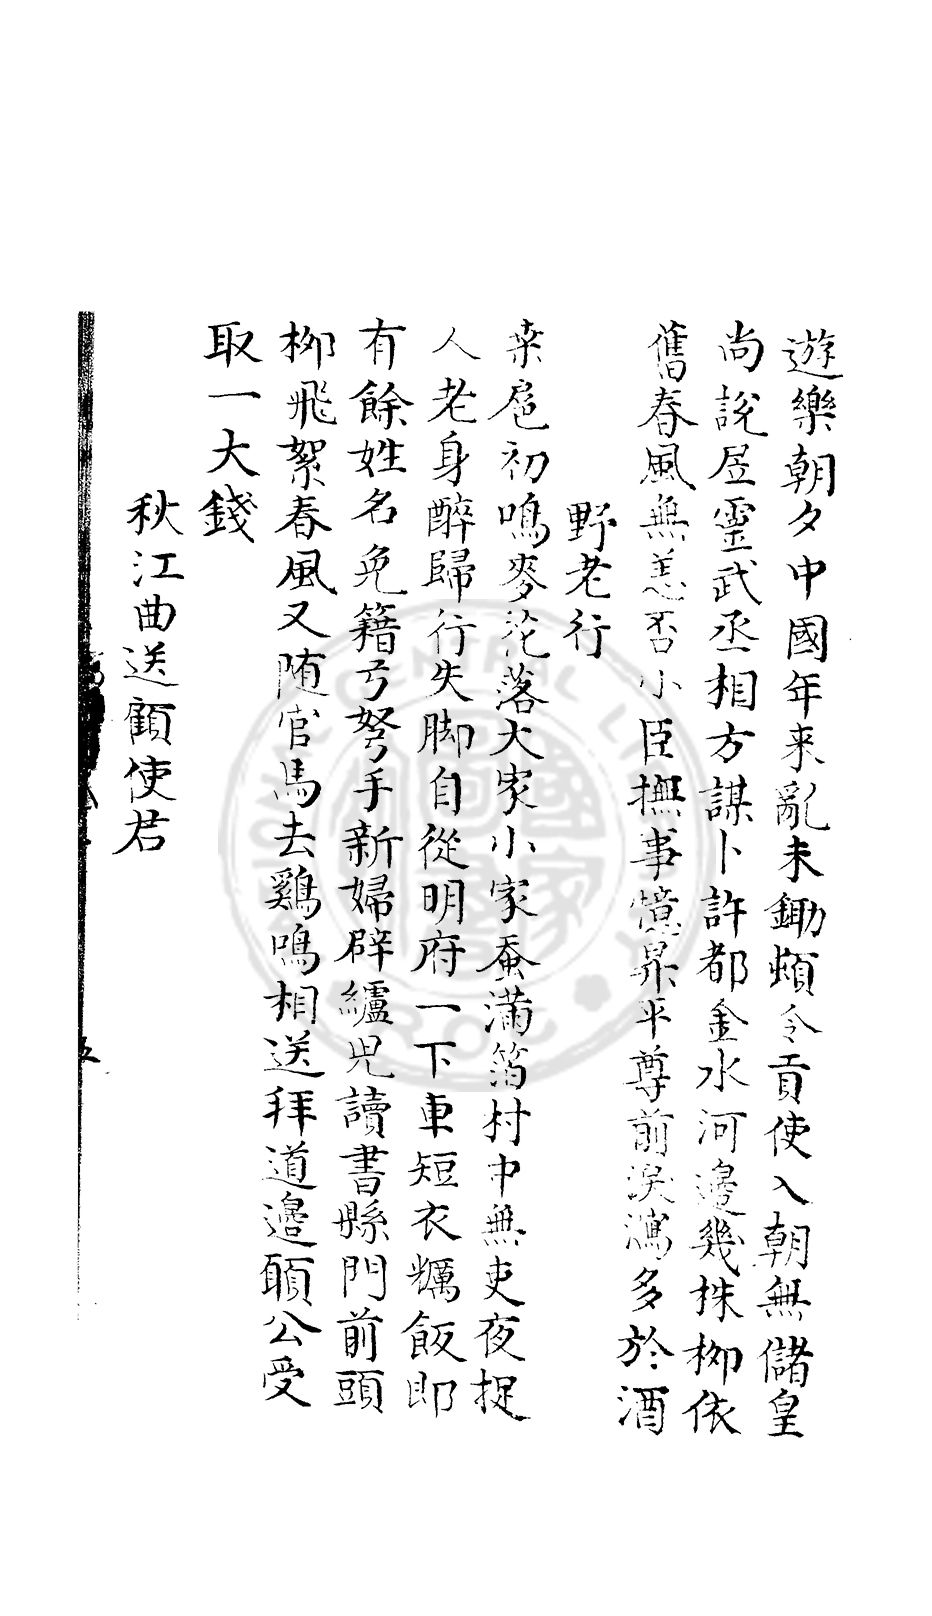 遊樂朝夕中國年来亂未鋤頻令貢使入朝無儲皇
尚說居靈武丞相方謀卜許都金水河邊幾株柳依
舊春風無恙否小臣撫事憶昇平尊前淚瀉多於酒
野老行
桒扈初鳴麥花落大家小家蚕滿箔村中無吏夜捉
人老身醉歸行失脚自從明府一下車短衣糲飯即
有餘姓名免籍弓弩手新婦辟纑児讀書縣門前頭
柳飛絮春風又随官馬去鷄鳴相送拜道邊願公受
取一大錢
秋江曲送顧使君
五
CENTRAL LIBRARY